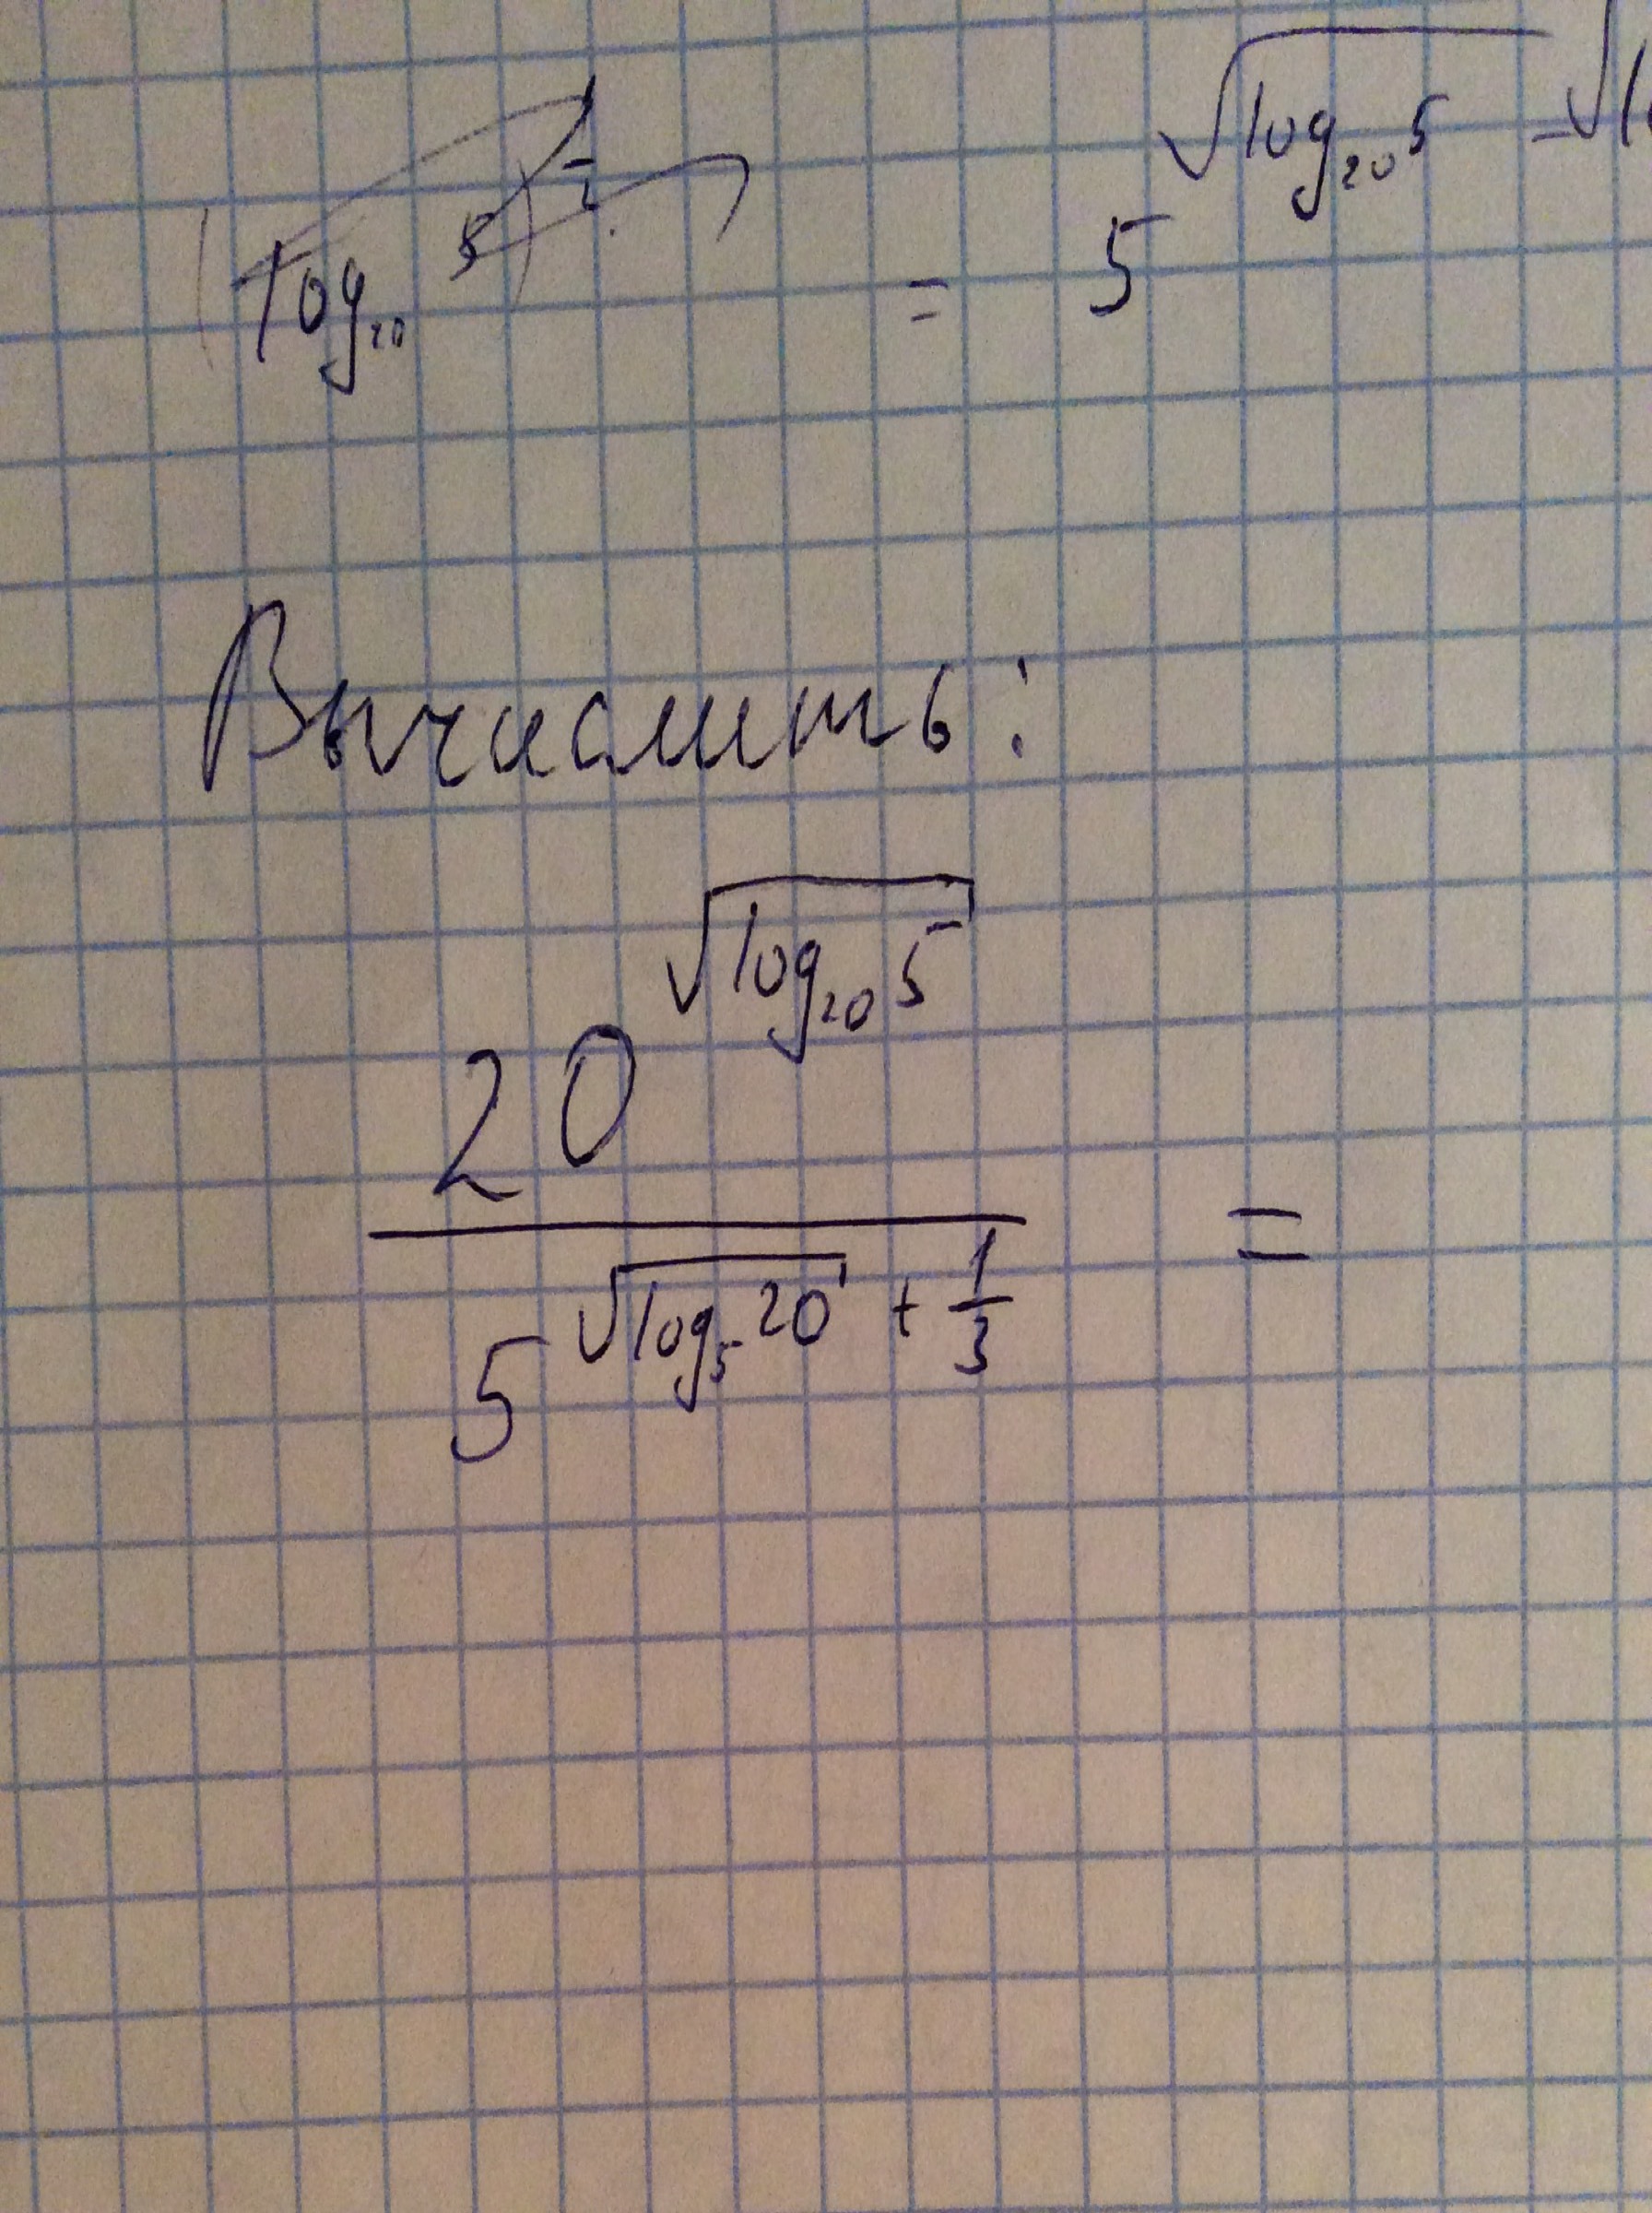 (log₂₀ 5)^1/2 = 5^√(log₂₀ 5) - √
Вычислить:
20^√(log₂₀ 5)
5^(√(log₅ 20) + 1/3) =